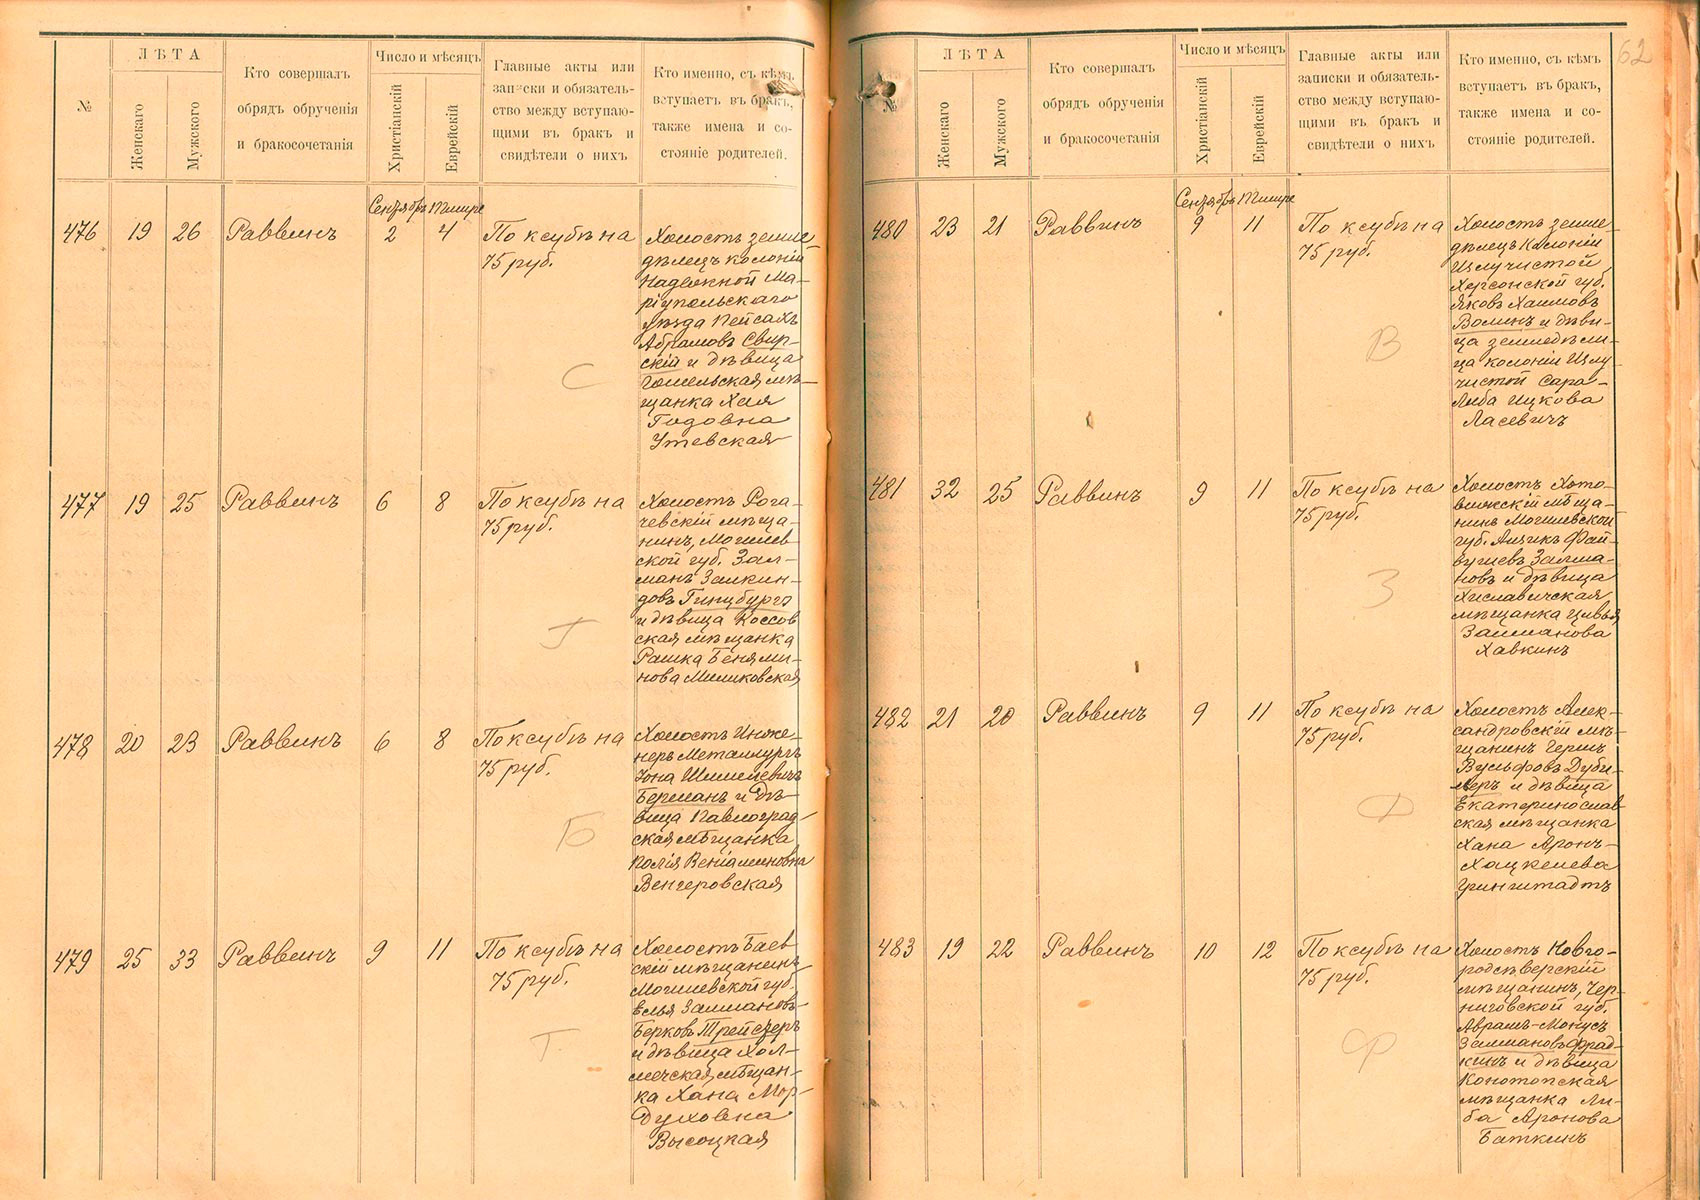 ЛѢТА
Число и мѣсяцъ
№
Женскаго
Мужского
Кто совершалъ
обрядъ обрученія
и бракосочетанія
Христіанскій
Еврейскій
Главные акты или
записки и обязатель-
ство между вступаю-
щими въ бракъ и
свидѣтели о нихъ
Кто именно, съ кѣмъ
вступаетъ въ бракъ,
также имена и со-
стояніе родителей.
Сентябрь Тишре
476 19 26 Раввинъ 2 4 По ксубѣ на
75 руб.
Холостъ земле-
дѣлецъ колоніи
Надежной Ма-
ріупольскаго
уѣзда Пейсахъ
Абрамовъ Свир-
скій и дѣвица
Гомельская мѣ-
щанка Хая
Годовна
Утевская
С
477 19 25 Раввинъ 6 8 По ксубѣ на
75 руб.
Холостъ Рога-
чевскій мѣща-
нинъ, Могилев-
ской губ. Зал-
манъ Залкин-
довъ Гинцбургъ
и дѣвица Коссов
ская мѣщанка
Рашка Беням​и-
нова Миликовская
Г
478 20 23 Раввинъ 6 8 По ксубѣ на
75 руб.
Холостъ Инже-
неръ Металлургъ
Іона Шмилевичъ
Берманъ и дѣ-
вица Павлоград-
ская мѣщанка
Веніаминовна
Венгеровская
Б
479 25 33 Раввинъ 9 11 По ксубѣ на
75 руб.
Холостъ Баев
скій мѣщанинъ
Могилевской губ.
Елья Залмановъ-
Берковъ Трейстеръ
и дѣвица Хол-
мечская мѣщан-
ка Хана Мор-
духовна
Высоцкая
Т
62
ЛѢТА
Число и мѣсяцъ
№
Женскаго
Мужского
Кто совершалъ
обрядъ обрученія
и бракосочетанія
Христіанскій
Еврейскій
Главные акты или
записки и обязатель-
ство между вступаю-
щими въ бракъ и
свидѣтели о нихъ
Кто именно, съ кѣмъ
вступаетъ въ бракъ,
также имена и со-
стояніе родителей.
Сентябрь Тишре
480 23 21 Раввинъ 9 11 По ксубѣ на
75 руб.
Холостъ земле-
дѣлецъ Колоніи
Излучистой
Херсонской губ.
Яковъ Хаимовъ
Волинъ и дѣви-
ца земледѣли-
ца колоніи Излу
чистой Сара-
Либа Ицкова
Ласевичъ
В
481 32 25 Раввинъ 9 11 По ксубѣ на
75 руб.
Холостъ Хото-
вижскій мѣща-
нинъ Могилевской
губ. Айзикъ Фай-
вушевъ Залма-
новъ и дѣвица
Хиславичская
мѣщанка Цивья
Залманова
Хавкинъ
З
482 21 20 Раввинъ 9 11 По ксубѣ на
75 руб.
Холостъ Алек-
сандровскій мѣ-
щанинъ Гершъ
Вульфовъ Дуби-
леръ и дѣвица
Екатеринослав
ская мѣщанка
Хана Аронъ-
Хацкелева
Гринштадтъ
Д
483 19 22 Раввинъ 10 12 По ксубѣ на
75 руб.
Холостъ Новго-
родсѣверскій
мѣщанинъ, Чер-
ниговской губ.
Аврамъ-Монусъ
Залмановъ Фрад-
кинъ и дѣвица
Конотопская
мѣщанка Ли-
ба Аронова
Баткинъ
Ф